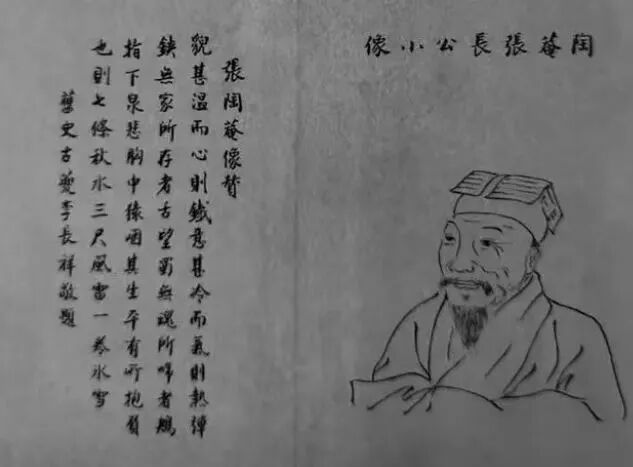 陶菴張長公小像
張陶菴像贊
貌甚温而心則鐵意甚冷而氣則熱彈
鋏無家所存者古望蜀無魂所啼者鵑
指下泉悲胸中猿咽其生平有所抱負
也則七條秋水三尺風雷一卷氷雪
舊史古夔李長祥敬題